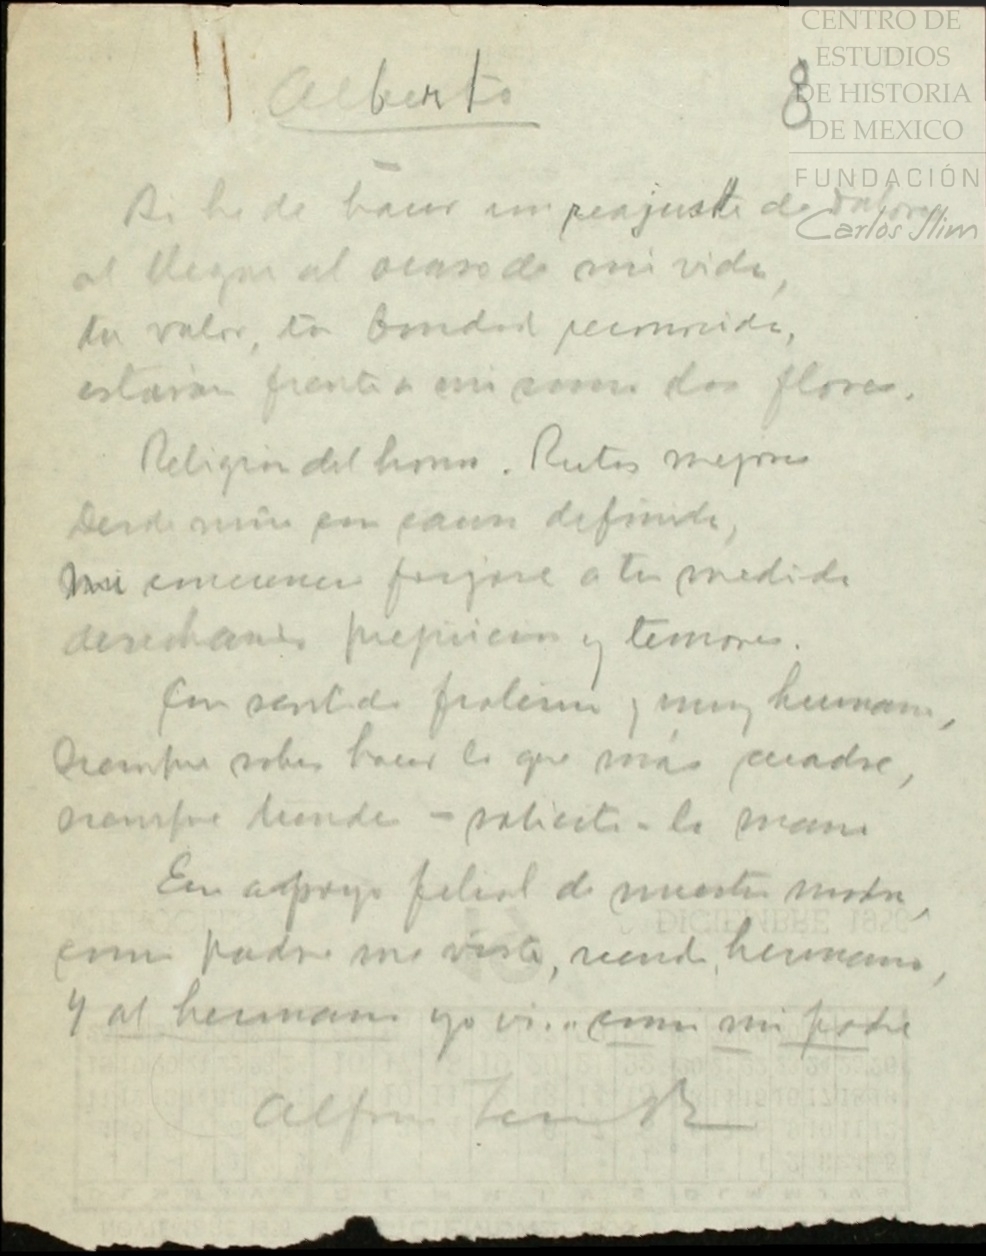 Alberto
8
CENTRO DE
ESTUDIOS
DE HISTORIA
DE MEXICO
FUNDACIÓN
Carlos Slim
Si he de hacer un reajuste de valores
al llegar al ocaso de mi vida,
tu valor, tu bondad reconocida,
estarán frente a mi como dos flores.
Religión del honor. Rutas mejores
Desde niño en cauce definida,
mi forjaré a tu medida
desechando prejuicios y temores.
Con sentido fraterno y muy humano,
Siempre sabes hacer lo que más cuadre,
siempre tiendes - solícito - la mano
En apoyo filial de nuestra madre,
como padre me viste, siendo hermano,
Y al hermano yo vi... como mi padre
DICIEMBRE